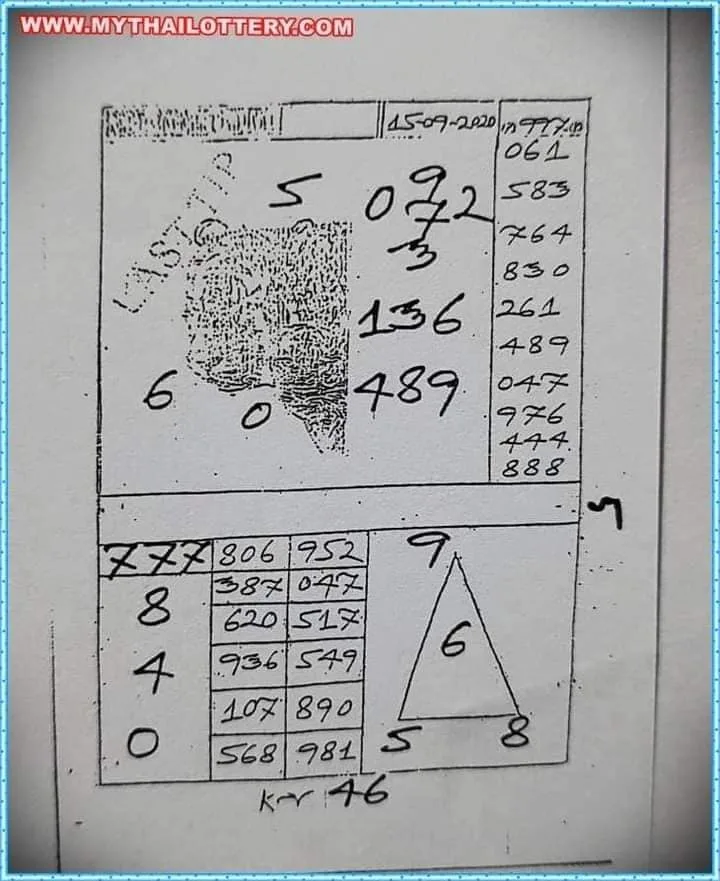 WWW.MYTHAILOTTERY.COM
15-09-2020
061
583
764
830
261
489
047
976
444
888
LAST TIP
5
9
0 7 2
3
136
489
6
0
777 806 952
387 047
8
620 517
4
936 549
107 890
0
568 981
9
6
5 8
46